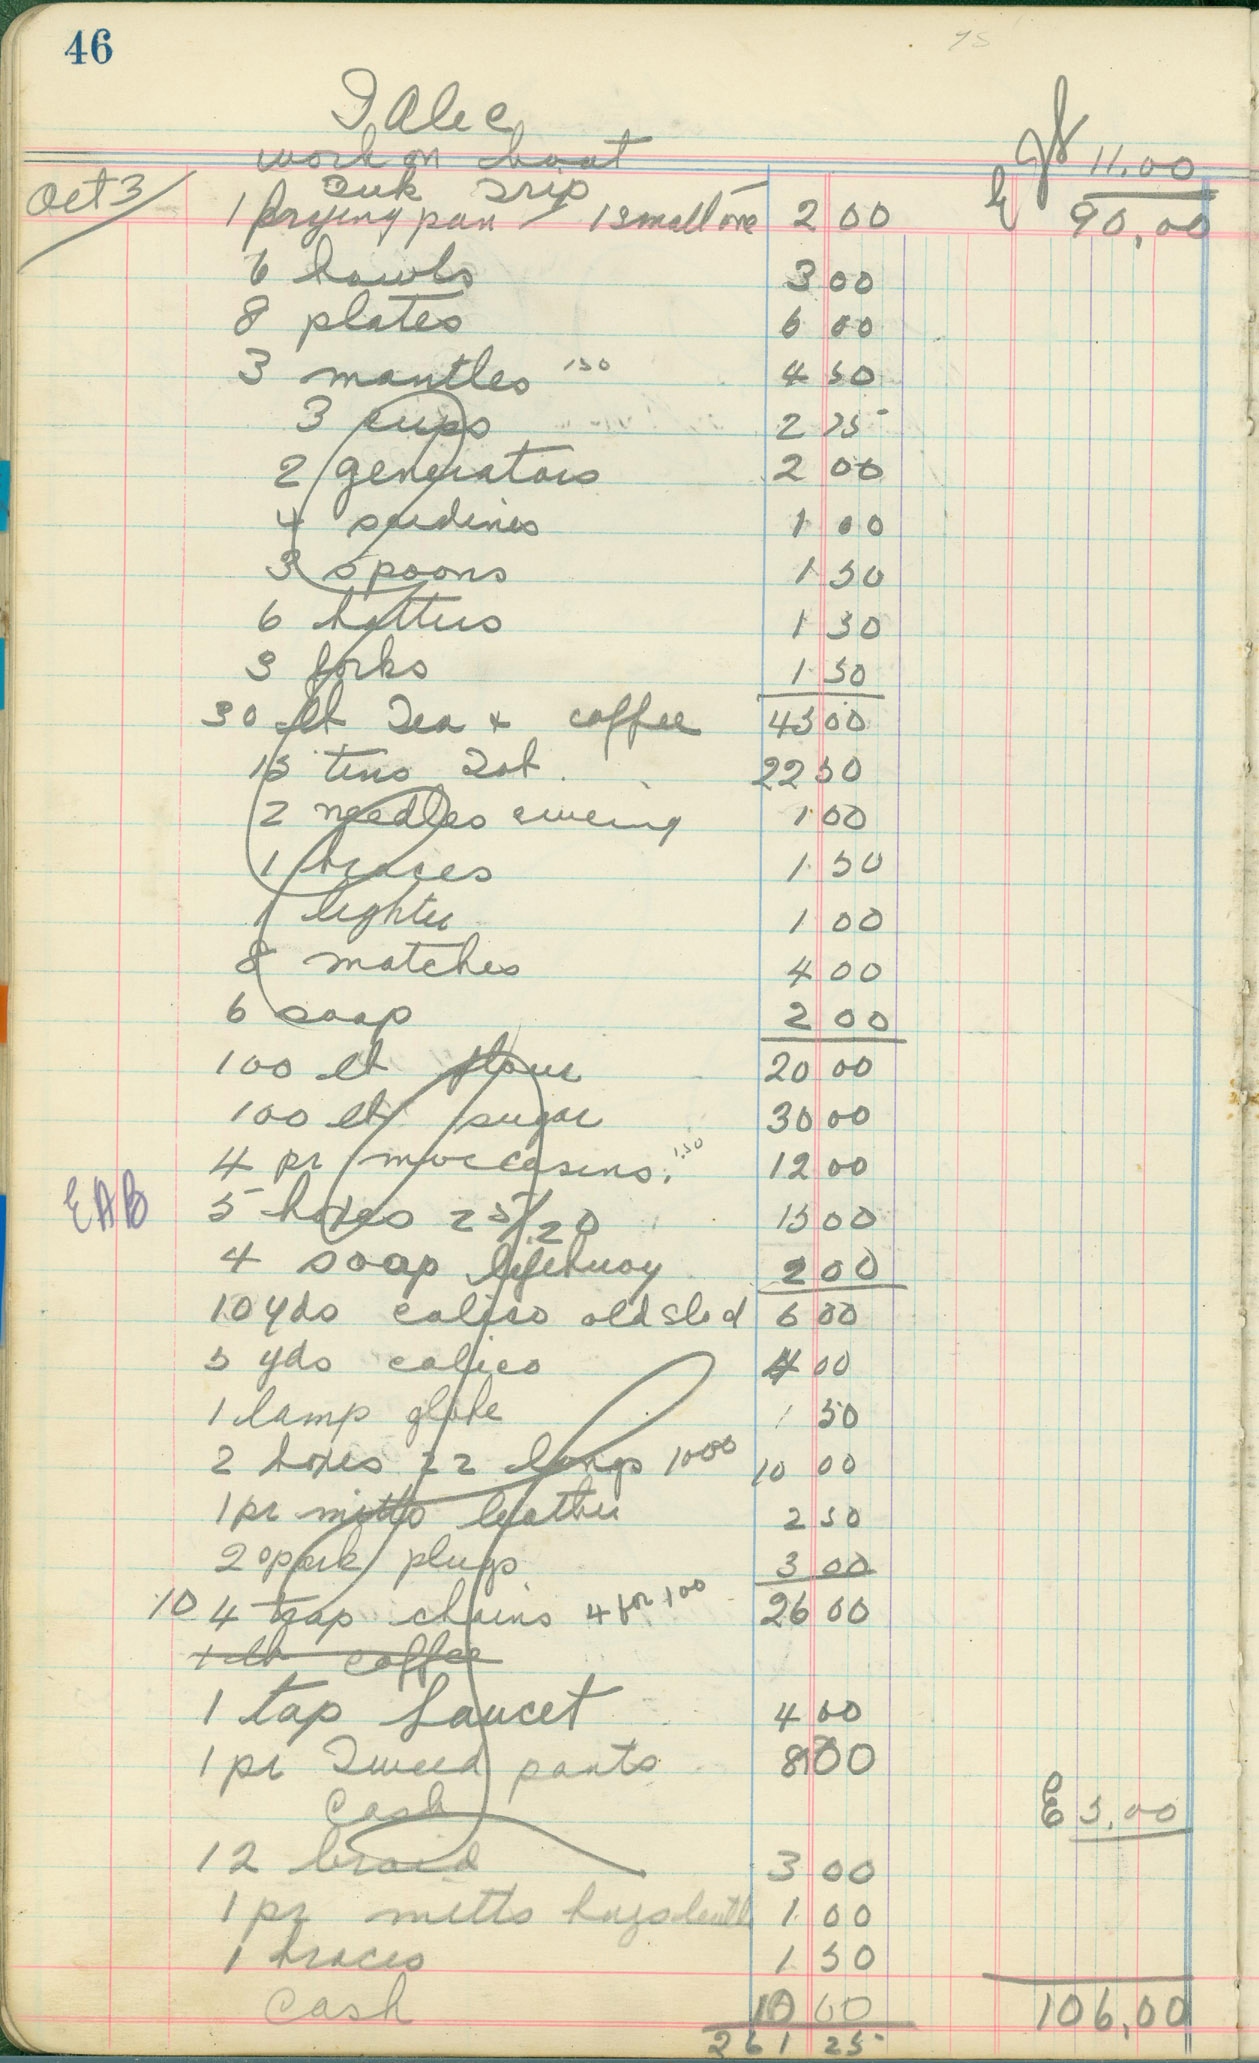 46
75
I Alec
work on boat
Jf 11.00
Oct 3
Auk Trip
1 frying pan 1 small one 2 00
90.00
6 bowls 3 00
8 plates 6 00
3 mantles 150 4 50
3 cups 2 25
2 generators 2 00
4 sardines 1 00
3 spoons 1 50
6 batters 1 50
3 forks 1 50
30 lb Tea + coffee 45 00
15 tins Tob. 22 50
2 needles sweing 1 00
1 braces 1 50
1 lighter 1 00
8 matches 4 00
6 soap 2 00
100 lb flour 20 00
100 lb sugar 30 00
4 pr moccasins. 1.50 12 00
EAB
5 boxes 25/20 15 00
4 soap lifebuoy 2 00
10 yds calico old sled 6 00
5 yds calico 4 00
1 lamp globe 1 50
2 boxes 22 longs 1000 10 00
1 pr mitts leather 2 50
2 spark plugs 3 00
10 4 trap chains 4 for 100 26 00
1 lb coffee
1 tap faucet 4 00
1 pr Tweed pants 8 00
Cash 5.00
12 braid 3 00
1 pr mitts boys leath 1 00
1 braces 1 50
Cash 10 00 106.00
261 25